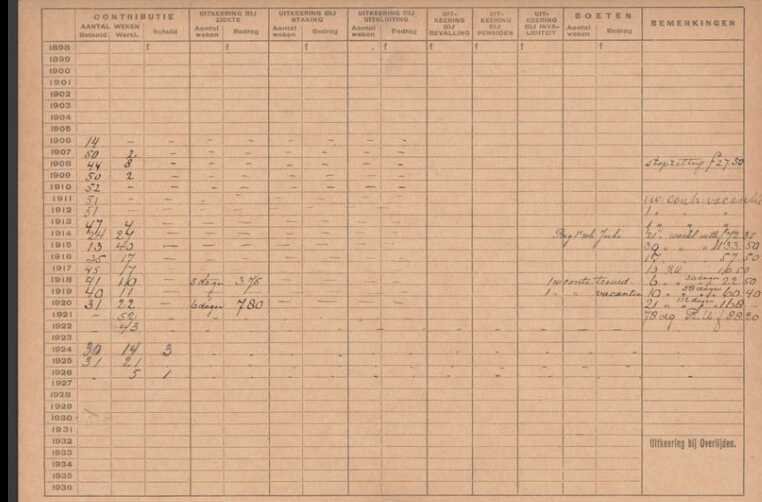 CONTRIBUTIE UITKEERING BIJ ZIEKTE UITKEERING BIJ STAKING UITKEERING BIJ UITSLUITING UIT- KEERING BIJ BEVALLING UIT- KEERING BIJ PENSIOEN UIT- KEERING BIJ INVA- LIDITEIT BOETEN BEMERKINGEN
AANTAL WEKEN Betaald Werkl. Schuld Aantal weken Bedrag Aantal weken Bedrag Aantal weken Bedrag Aantal weken Bedrag
1898 f f f f f f f f
1899
1900
1901
1902
1903
1904
1905
1906 14 - - - - - - - -
1907 50 2 - - - - - - -
1908 44 8 - - - - - - - f 27.50
1909 50 2 - - - - - - -
1910 52 - - - - - - - -
1911 51 - - - - - - - -
1912 51 - - - - - - - - 1
1913 47 4 - - - - - - -
1914 24 24 - - - - - - -
1915 13 40 - - - - - - - 30 133 50
1916 35 17 - - - - - - - 17 57 50
1917 45 17 - - - - - - - 13 16 50
1918 41 10 - 5 dagen 3 75 - - - - 6 22 50
1919 40 11 - - - - - - - 1 " vacantie 10 60 40
1920 31 22 - 6 dagen 7 80 - - - - 21 112 dagen
1921 - 52 78 dg R.U f 88 20
1922 - 43
1923
1924 30 14 3
1925 31 21
1926 - 5 1
1927
1928
1929
1930
1931
1932 Uitkeering bij Overlijden.
1933
1934
1935
1936